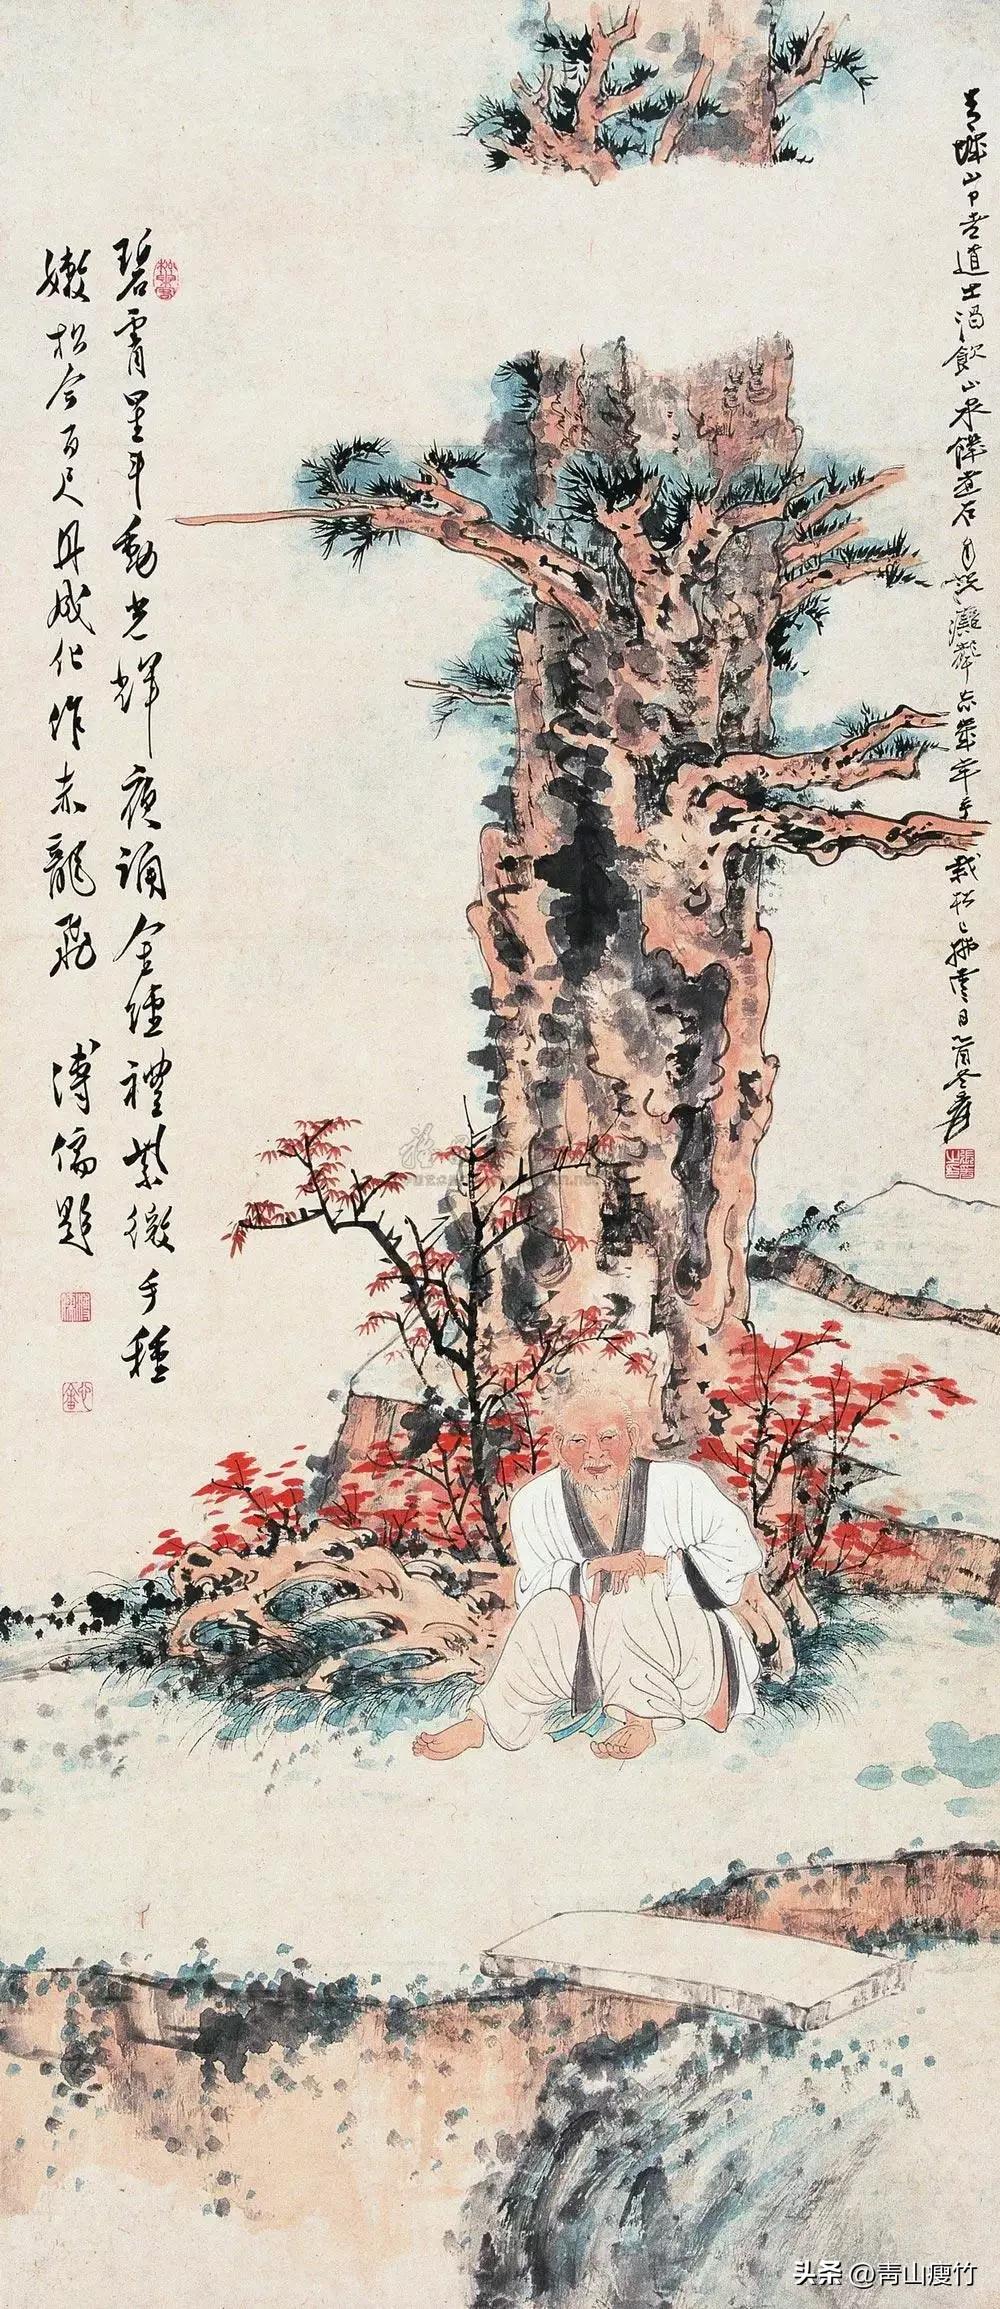 青城山中老道士渴飲山泉饑煮石自說 年手栽松已拂 日 爰
碧霄星斗動光輝夜誦金經禮紫微手種
嫩松今百尺丹成化作赤龍飛 溥儒題
头条 @青山瘦竹